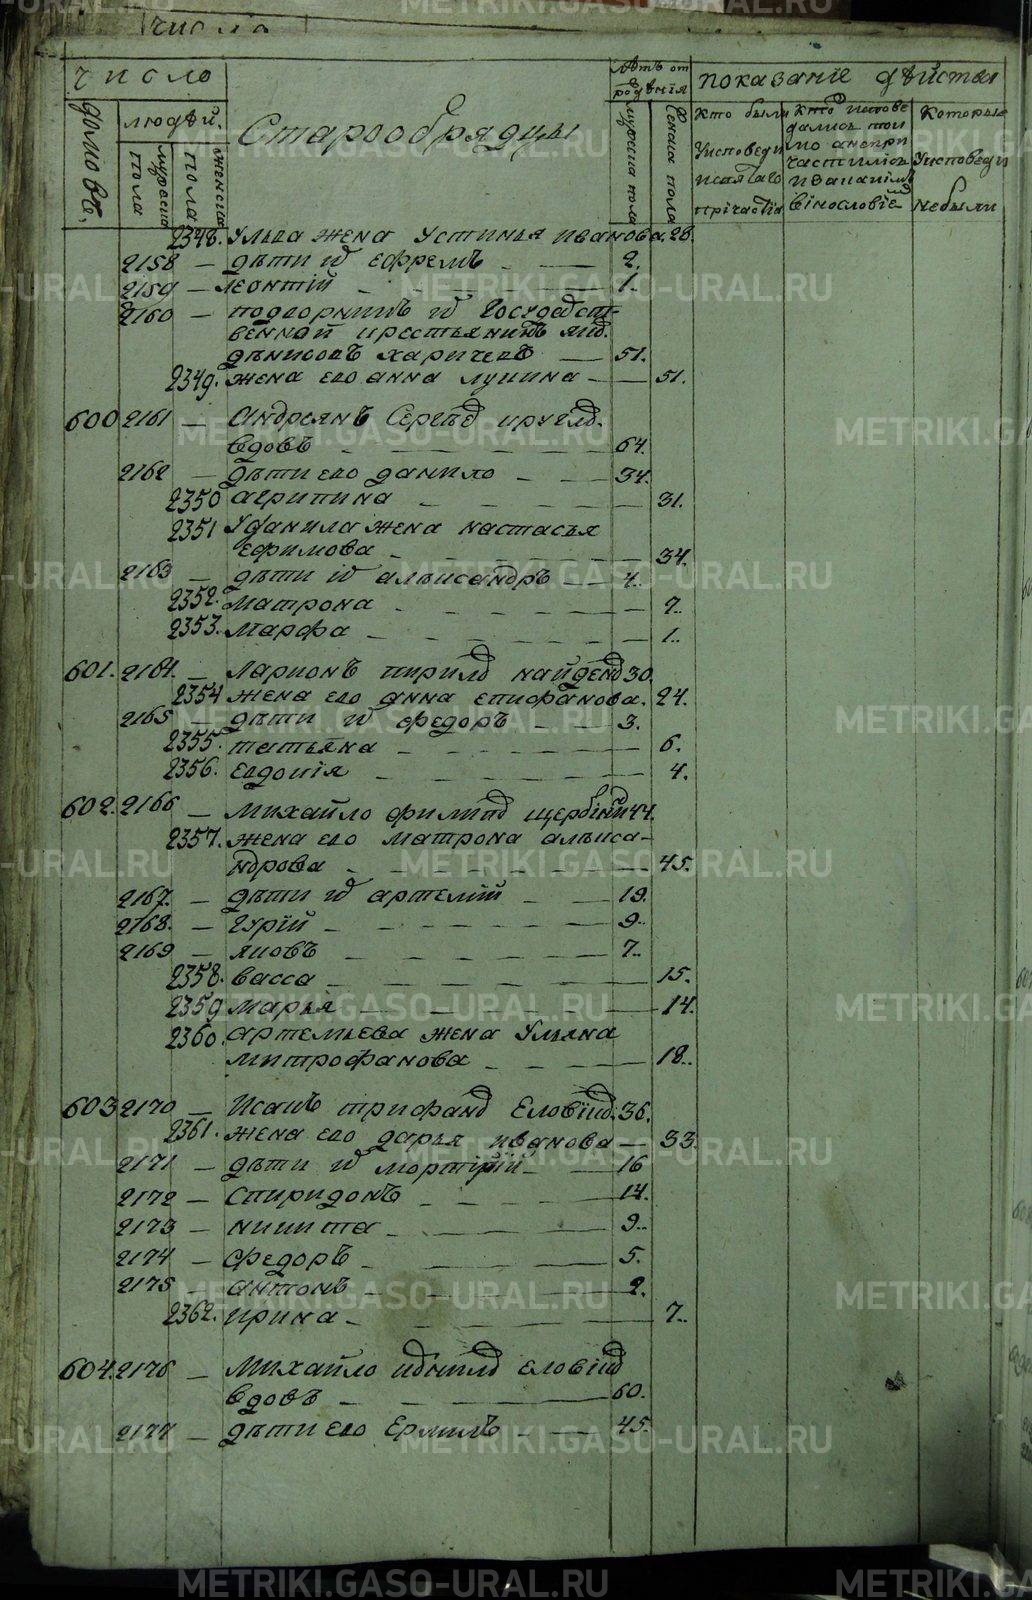 число
число
Лѣтъ от рождѣнія
показание дѣйства
домовъ.
людѣй.
мужеска пола
женска пола
Старообрядцы
мужеска пола
женска пола
Кто были у исповеди и святаго причастія
Кто исповедались токмо а не причастились и за какимъ винословіем
Которые у исповеди не были
2348. Улва жена Устинья иванова. 28.
2158 — дѣти их ефремъ — 2.
2159 — леонтій — 1.
2160 — подворникъ их Государст-
венной крестьянинъ
дѣнисовъ харичевъ — 51.
2349. жена его анна лукина — 51.
600 2161 — Андреянъ Сергѣев
вдовъ — 64.
2162 — дѣти его данило — 34.
2350 агрипина — 31.
2351 У данила жена настасья
ефимова — 34.
2163 — дѣти их алѣксандръ — 4.
2352. матрона — 7.
2353. марфа — 1.
601. 2164. — Ларионъ кирилов найденов 30.
2354 жена его анна епифанова. 24.
2165 — дѣти их федоръ — 3.
2355. татьяна — 6.
2356. евдокія — 4.
602. 2166 — михайло филипов щербинин 44.
2357. жена его матрона алѣкса-
ндрова — 45.
2167. — дѣти их артемій — 19.
2168. — гурій — 9.
2169 — яковъ — 7.
2358. васса — 15.
2359 марья — 14.
2360. артемьева жена Ульяна
митрофанова — 18.
603 2170 — Исакъ трифанов Еловских. 36.
2361. жена его дарья иванова — 33.
2171 — дѣти их — 16
2172 — Спиридонъ — 14.
2173 — никита — 9.
2174 — федоръ — 5.
2175 — антонъ — 2.
2362. ирина — 7.
604. 2176 — Михайло еловских
вдовъ — 60.
2177 — дѣти его Ермилъ — 45.
METRIKI.GASO-URAL.RU